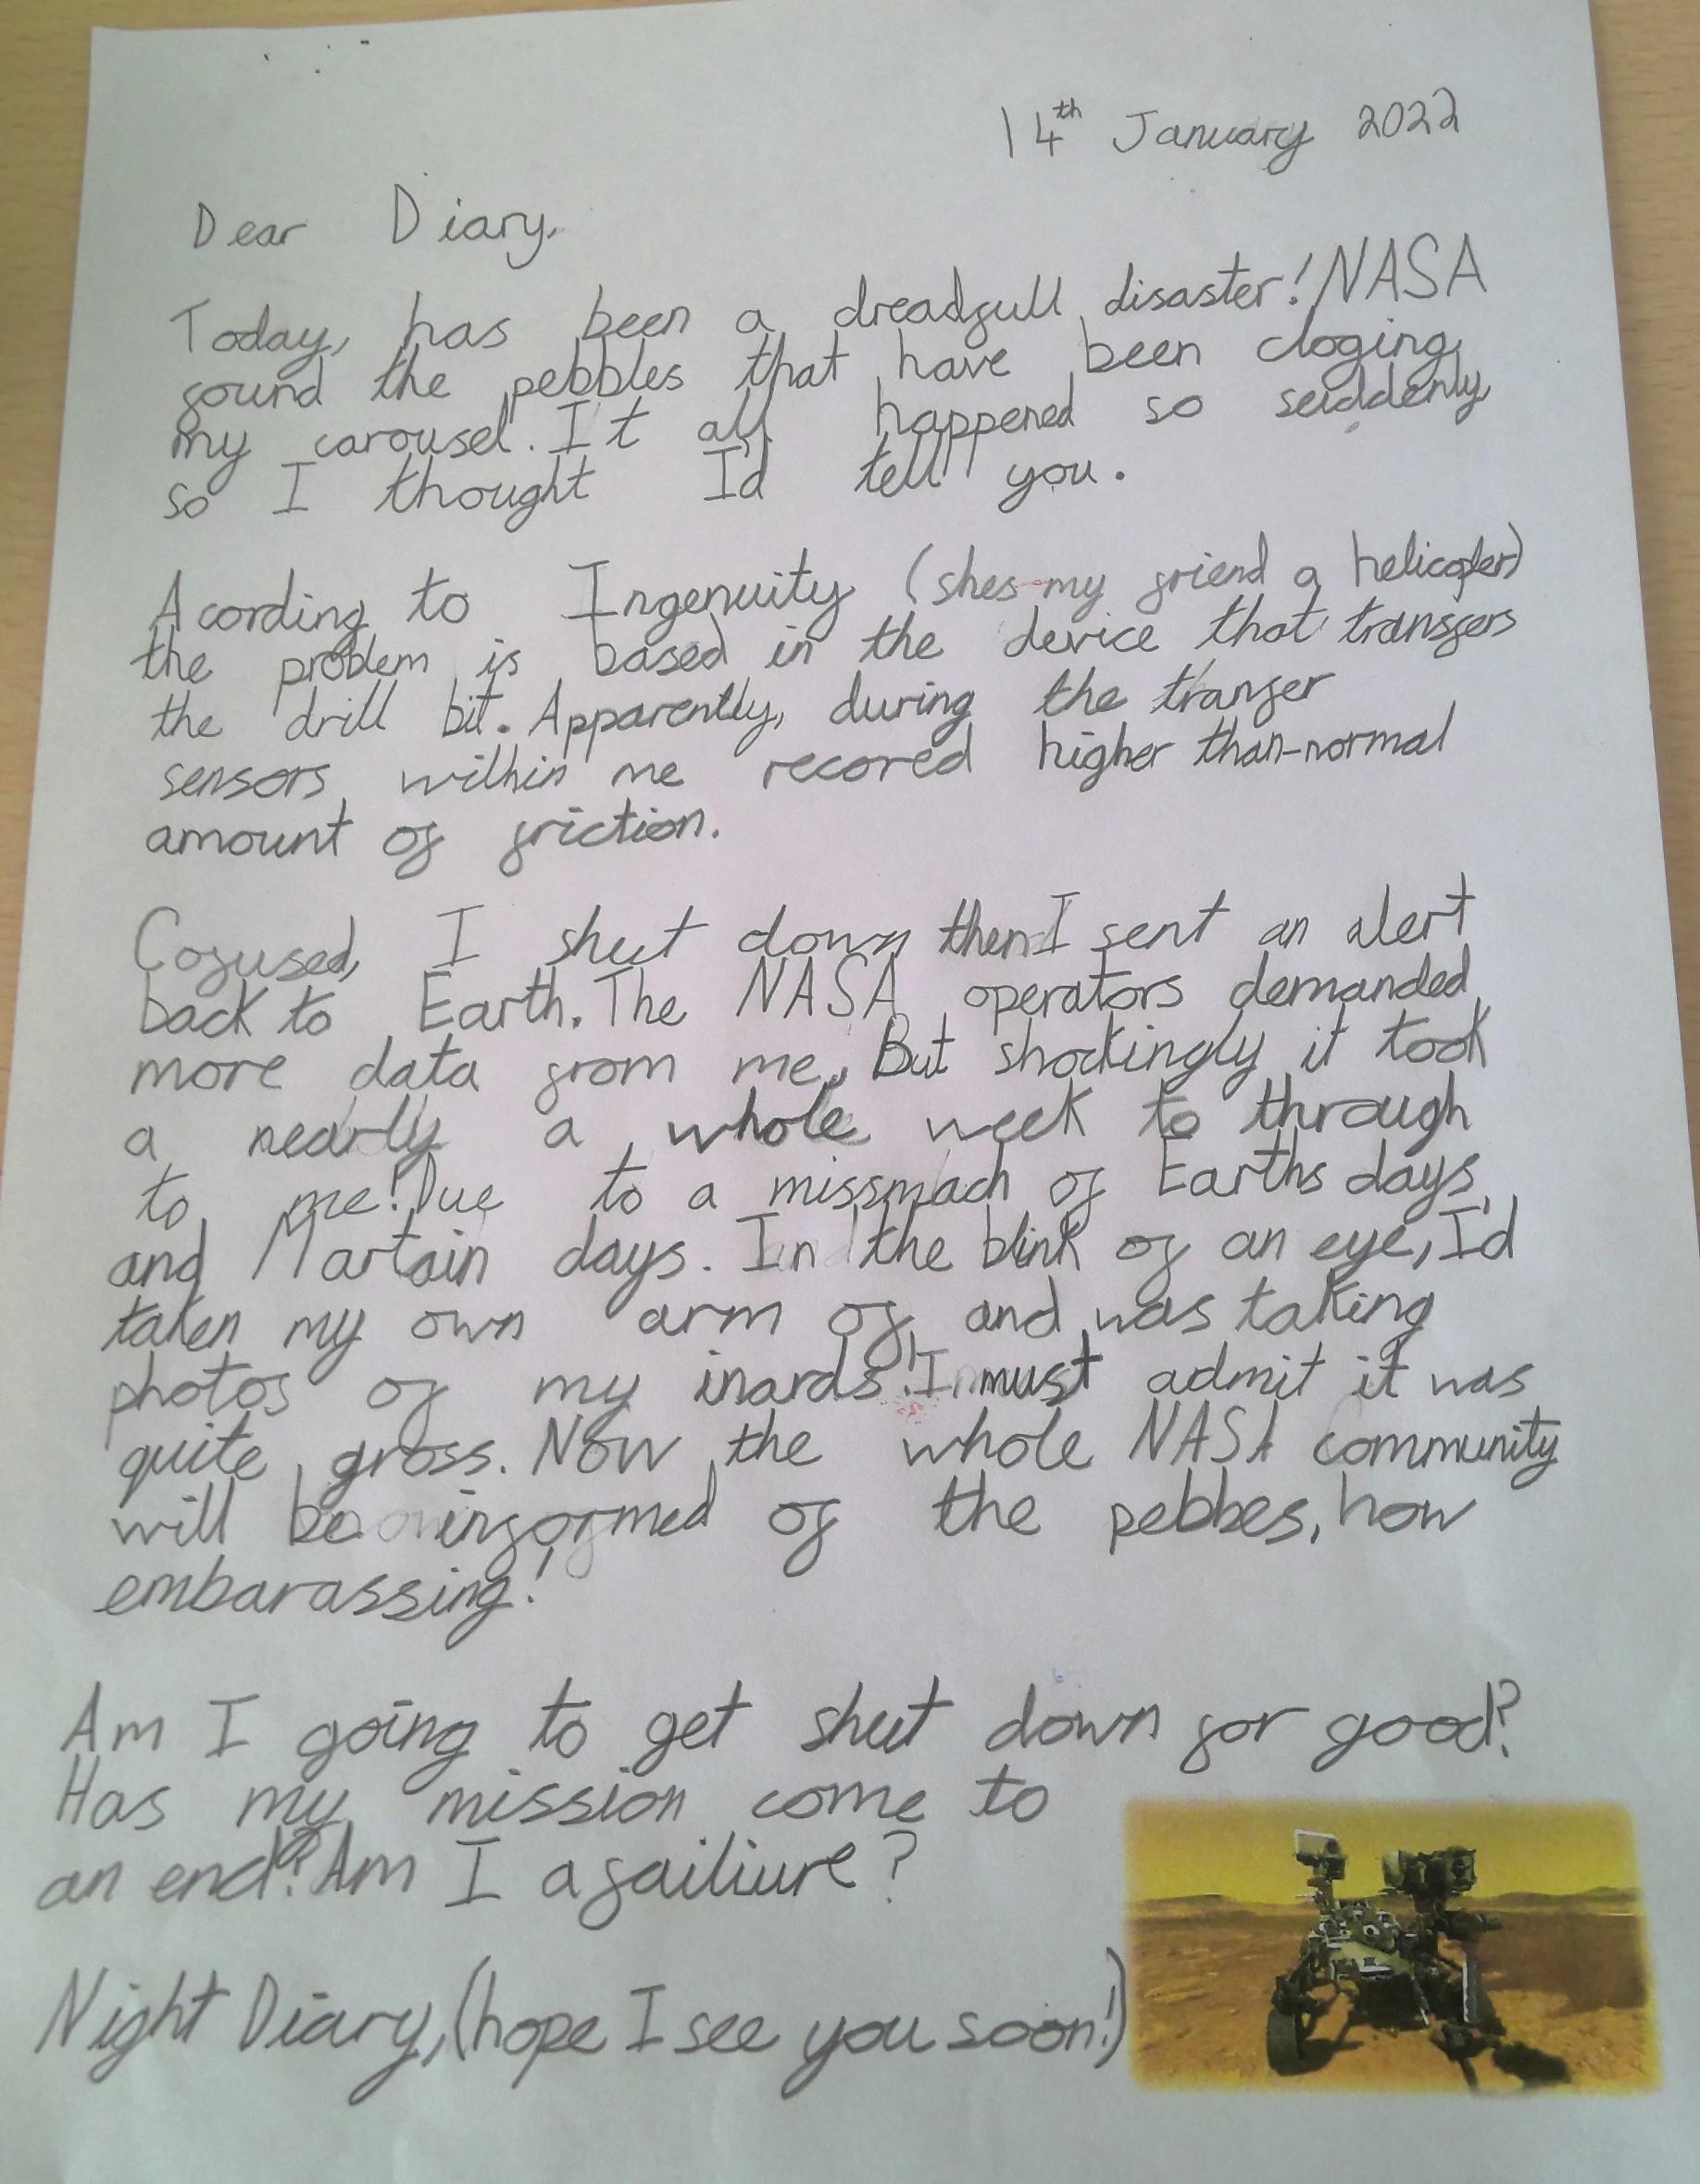 14th January 2022
Dear Diary,
Today, has been a dreadfull disaster! NASA
found the pebbles that have been cloging
my carousel. It all happened so suddenly
so I thought I'd tell you.
Acording to Ingenuity (shes my friend a helicopter)
the problem is based in the device that transfers
the drill bit. Apparently, during the tranfer
sensors within me recored higher than-normal
amount of friction.
Cofused, I shut down then I sent an alert
back to Earth. The NASA operators demanded
more data from me, But shockingly it took
a nearly a whole week to through
to me! Due to a missmach of Earths days
and Martain days. In the blink of an eye, I'd
taken my own arm of, and was taking
photos of my inards! I must admit it was
quite gross. Now the whole NASA community
will be informed of the pebbes, how
embarassing!
Am I going to get shut down for good?
Has my mission come to
an end? Am I a failiure?
Night Diary, (hope I see you soon!)